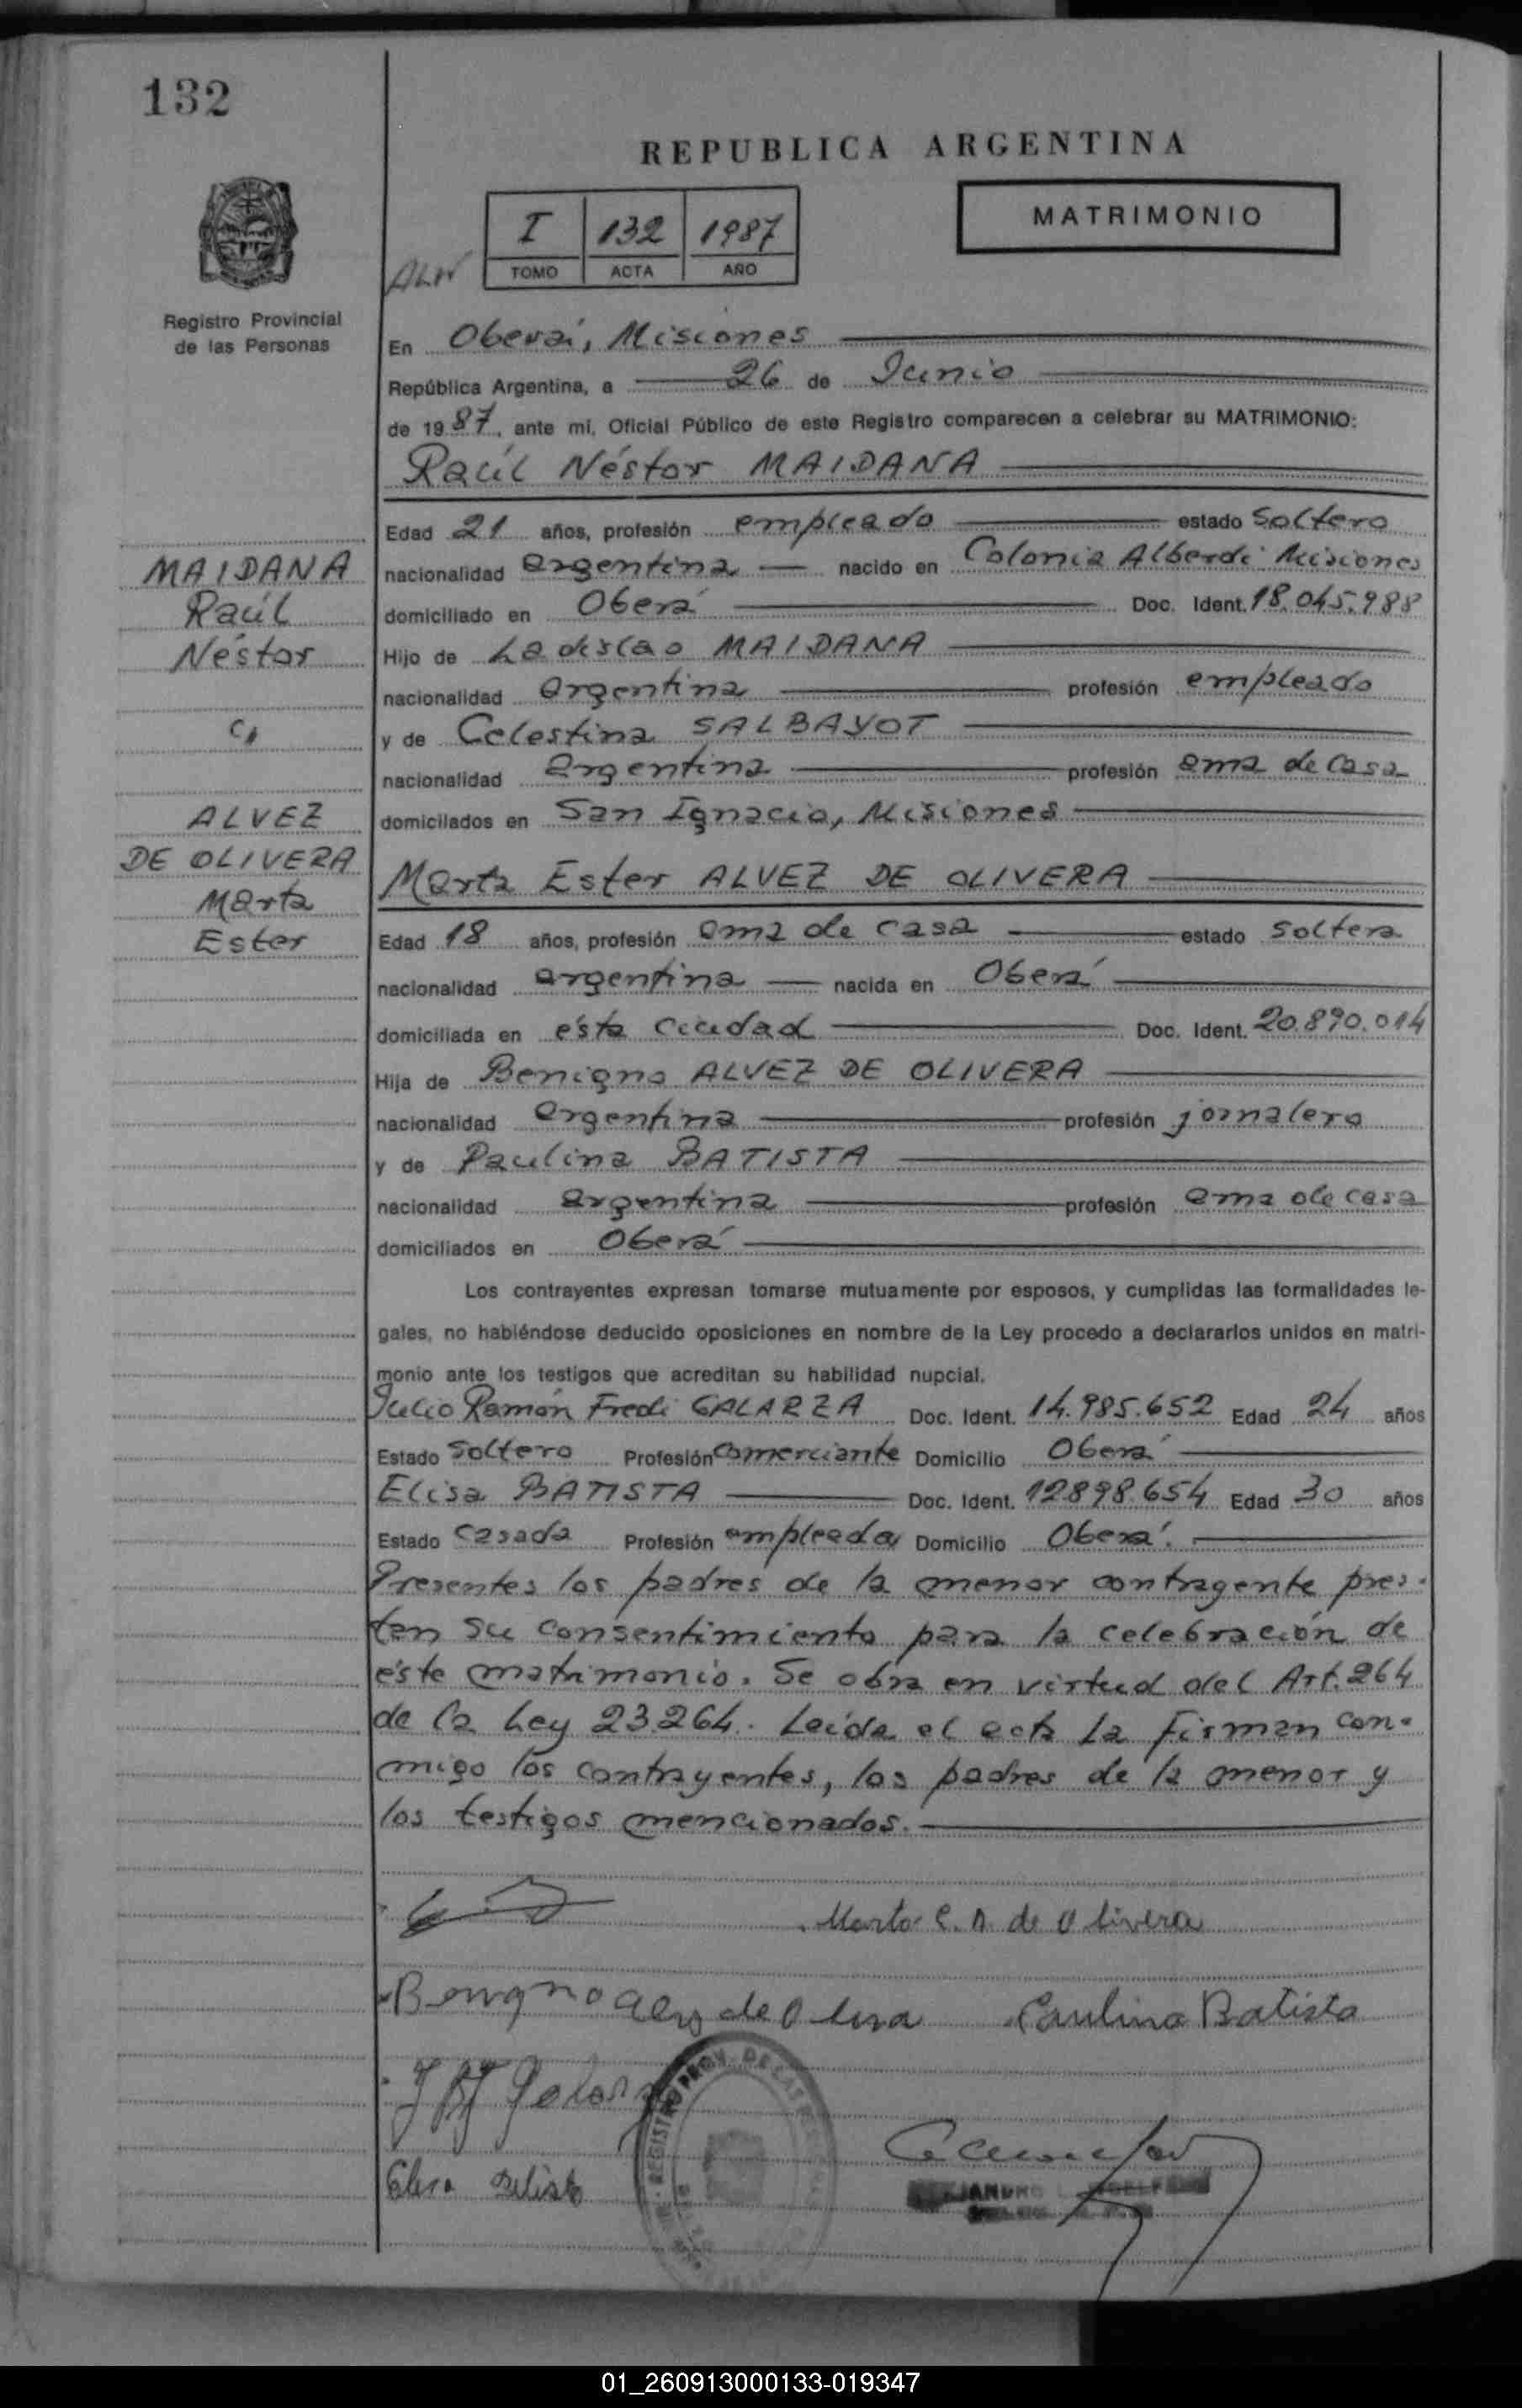 132
REPUBLICA ARGENTINA
MATRIMONIO
I 132 1987
TOMO ACTA AÑO
Registro Provincial
de las Personas
En Oberá, Misiones
República Argentina, a 26 de Junio
de 1987, ante mí, Oficial Público de este Registro comparecen a celebrar su MATRIMONIO:
Raúl Néstor MAIDANA
Edad 21 años, profesión empleado estado soltero
MAIDANA
Raúl
Néstor
c/
ALVEZ
DE OLIVERA
Marta
Ester
nacionalidad argentina nacido en Colonia Alberdi Misiones
domiciliado en Oberá Doc. Ident. 18.045.988
Hijo de Ladislao MAIDANA
nacionalidad argentina profesión empleado
y de Celestina SALBAYOT
nacionalidad argentina profesión ama de casa
domicilados en San Ignacio, Misiones
Marta Ester ALVEZ DE OLIVERA
Edad 18 años, profesión ama de casa estado soltera
nacionalidad argentina nacida en Oberá
domiciliada en ésta ciudad Doc. Ident. 20.890.014
Hija de Benigno ALVEZ DE OLIVERA
nacionalidad argentina profesión jornalero
y de Paulina BATISTA
nacionalidad argentina profesión ama de casa
domiciliados en Oberá
Los contrayentes expresan tomarse mutuamente por esposos, y cumplidas las formalidades le-
gales, no habiéndose deducido oposiciones en nombre de la Ley procedo a declararlos unidos en matri-
monio ante los testigos que acreditan su habilidad nupcial.
Julio Ramón Fredi GALARZA Doc. Ident. 14.985.652 Edad 24 años
Estado soltero Profesión comerciante Domicilio Oberá
Elisa BATISTA Doc. Ident. 12.898.654 Edad 30 años
Estado casada Profesión empleada Domicilio Oberá.
Presentes los padres de la menor contragente pres-
tan su consentimiento para la celebración de
éste matrimonio. Se obra en virtud del Art. 264
de la Ley 23.264. Leída el acta la firman con-
migo los contrayentes, los padres de la menor y
los testigos mencionados.
Marta E. A. de Olivera
Benigno de Paulina Batista
Elisa Batista
01_260913000133-019347